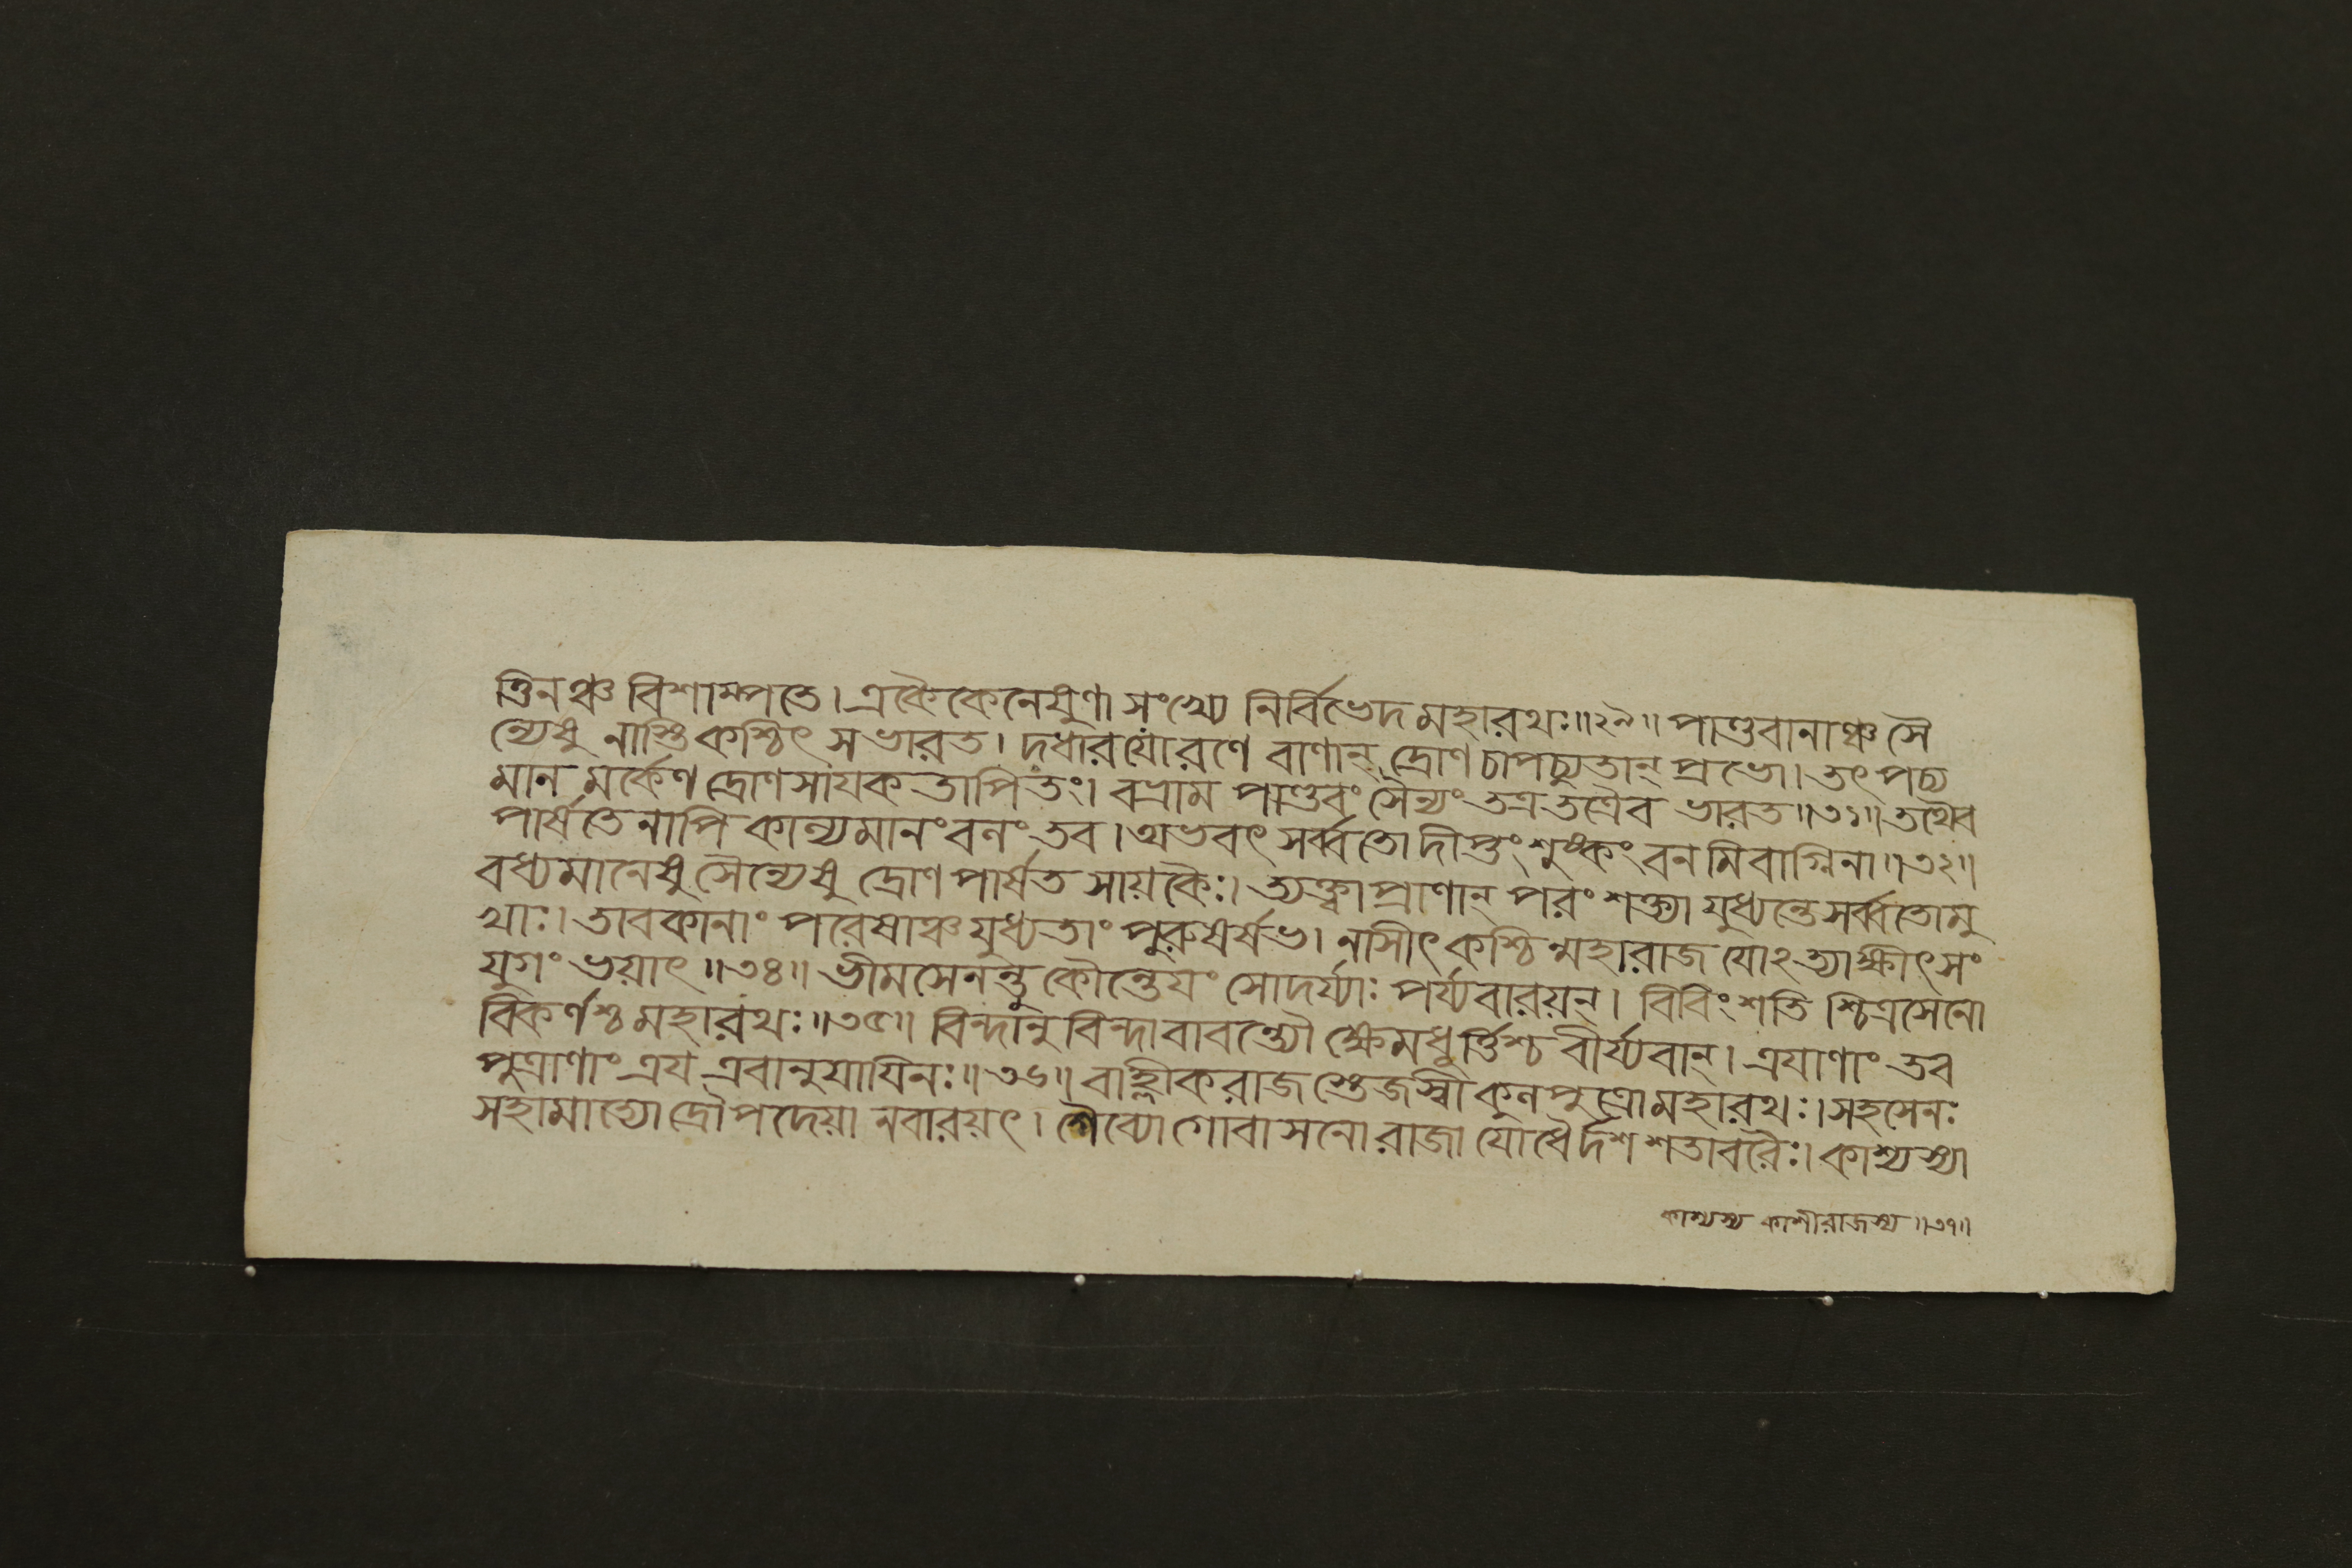 ত্তিনঞ্চ বিশাম্পতে। একৈকেনেষুণা সংখ্যে নির্বিভেদ মহারথঃ॥২৯॥ পাণ্ডবানাঞ্চ সৈ
ন্যেষু নাস্তি কশ্চিৎ স ভারত। দধার যো রণে বাণান্ দ্রোণচাপচ্যুতান্ প্রভো। তৎ পচ্য
মান মর্কেণ দ্রোণসায়ক তাপিতং। বভ্রাম পাণ্ডবং সৈন্যং তত্র তত্রৈব ভারত॥৩১॥ তথৈব
পার্ষতেনাপি কাল্যমানং বনং তব। অভবৎ সর্ব্বতো দীপ্তং শুষ্কং বনমিবাগ্নিনা॥৩২॥
বধ্যমানেষু সৈন্যেষু দ্রোণপার্ষত সায়কৈঃ। ত্যক্ত্বা প্রাণান্ পরং শক্ত্যা যুধ্যন্তে সর্ব্বতোমু
খাঃ। তাবকানাং পরেষাঞ্চ যুধ্যতাং পুরুষর্ষভ। নাসীৎ কশ্চিন্মহারাজ যোঽত্যাক্ষীৎ সং
যুগং ভয়াৎ॥৩৪॥ ভীমসেনন্তু কৌন্তেয়ং সোদর্য্যাঃ পর্য্যবারয়ন্। বিবিংশতি শ্চিত্রসেনো
বিকর্ণশ্চ মহারথঃ॥৩৫॥ বিন্দানুবিন্দাবাবন্ত্যৌ ক্ষেমধূর্ত্তিশ্চ বীর্য্যবান্। ত্রয়াণাং তব
পুত্রাণাং ত্রয় এবানুযায়িনঃ॥৩৬॥ বাহ্লীকরাজস্তেজস্বী কুলপুত্রো মহারথঃ। সহসেনঃ
সহামাত্যো দ্রৌপদেয়া নবারয়ৎ। শৈব্যো গোবাসনো রাজা যোধৈর্দশশতাবরৈঃ। কাশ্যস্যা
কাশ্যস্য কাশীরাজস্য॥৩৭॥